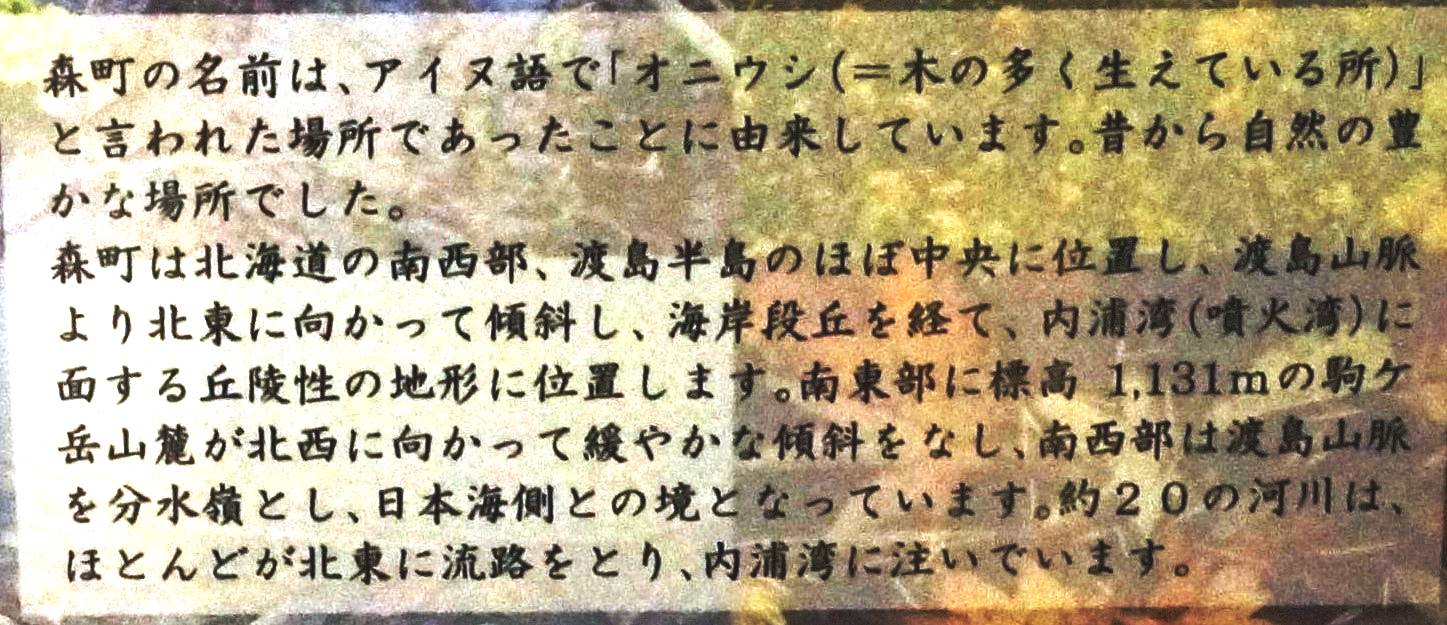 森町の名前は、アイヌ語で「オニウシ(=木の多く生えている所)」
と言われた場所であったことに由来しています。昔から自然の豊
かな場所でした。
森町は北海道の南西部、渡島半島のほぼ中央に位置し、渡島山脈
より北東に向かって傾斜し、海岸段丘を経て、内浦湾(噴火湾)に
面する丘陵性の地形に位置します。南東部に標高 1,131mの駒ケ
岳山麓が北西に向かって緩やかな傾斜をなし、南西部は渡島山脈
を分水嶺とし、日本海側との境となっています。約20の河川は、
ほとんどが北東に流路をとり、内浦湾に注いでいます。